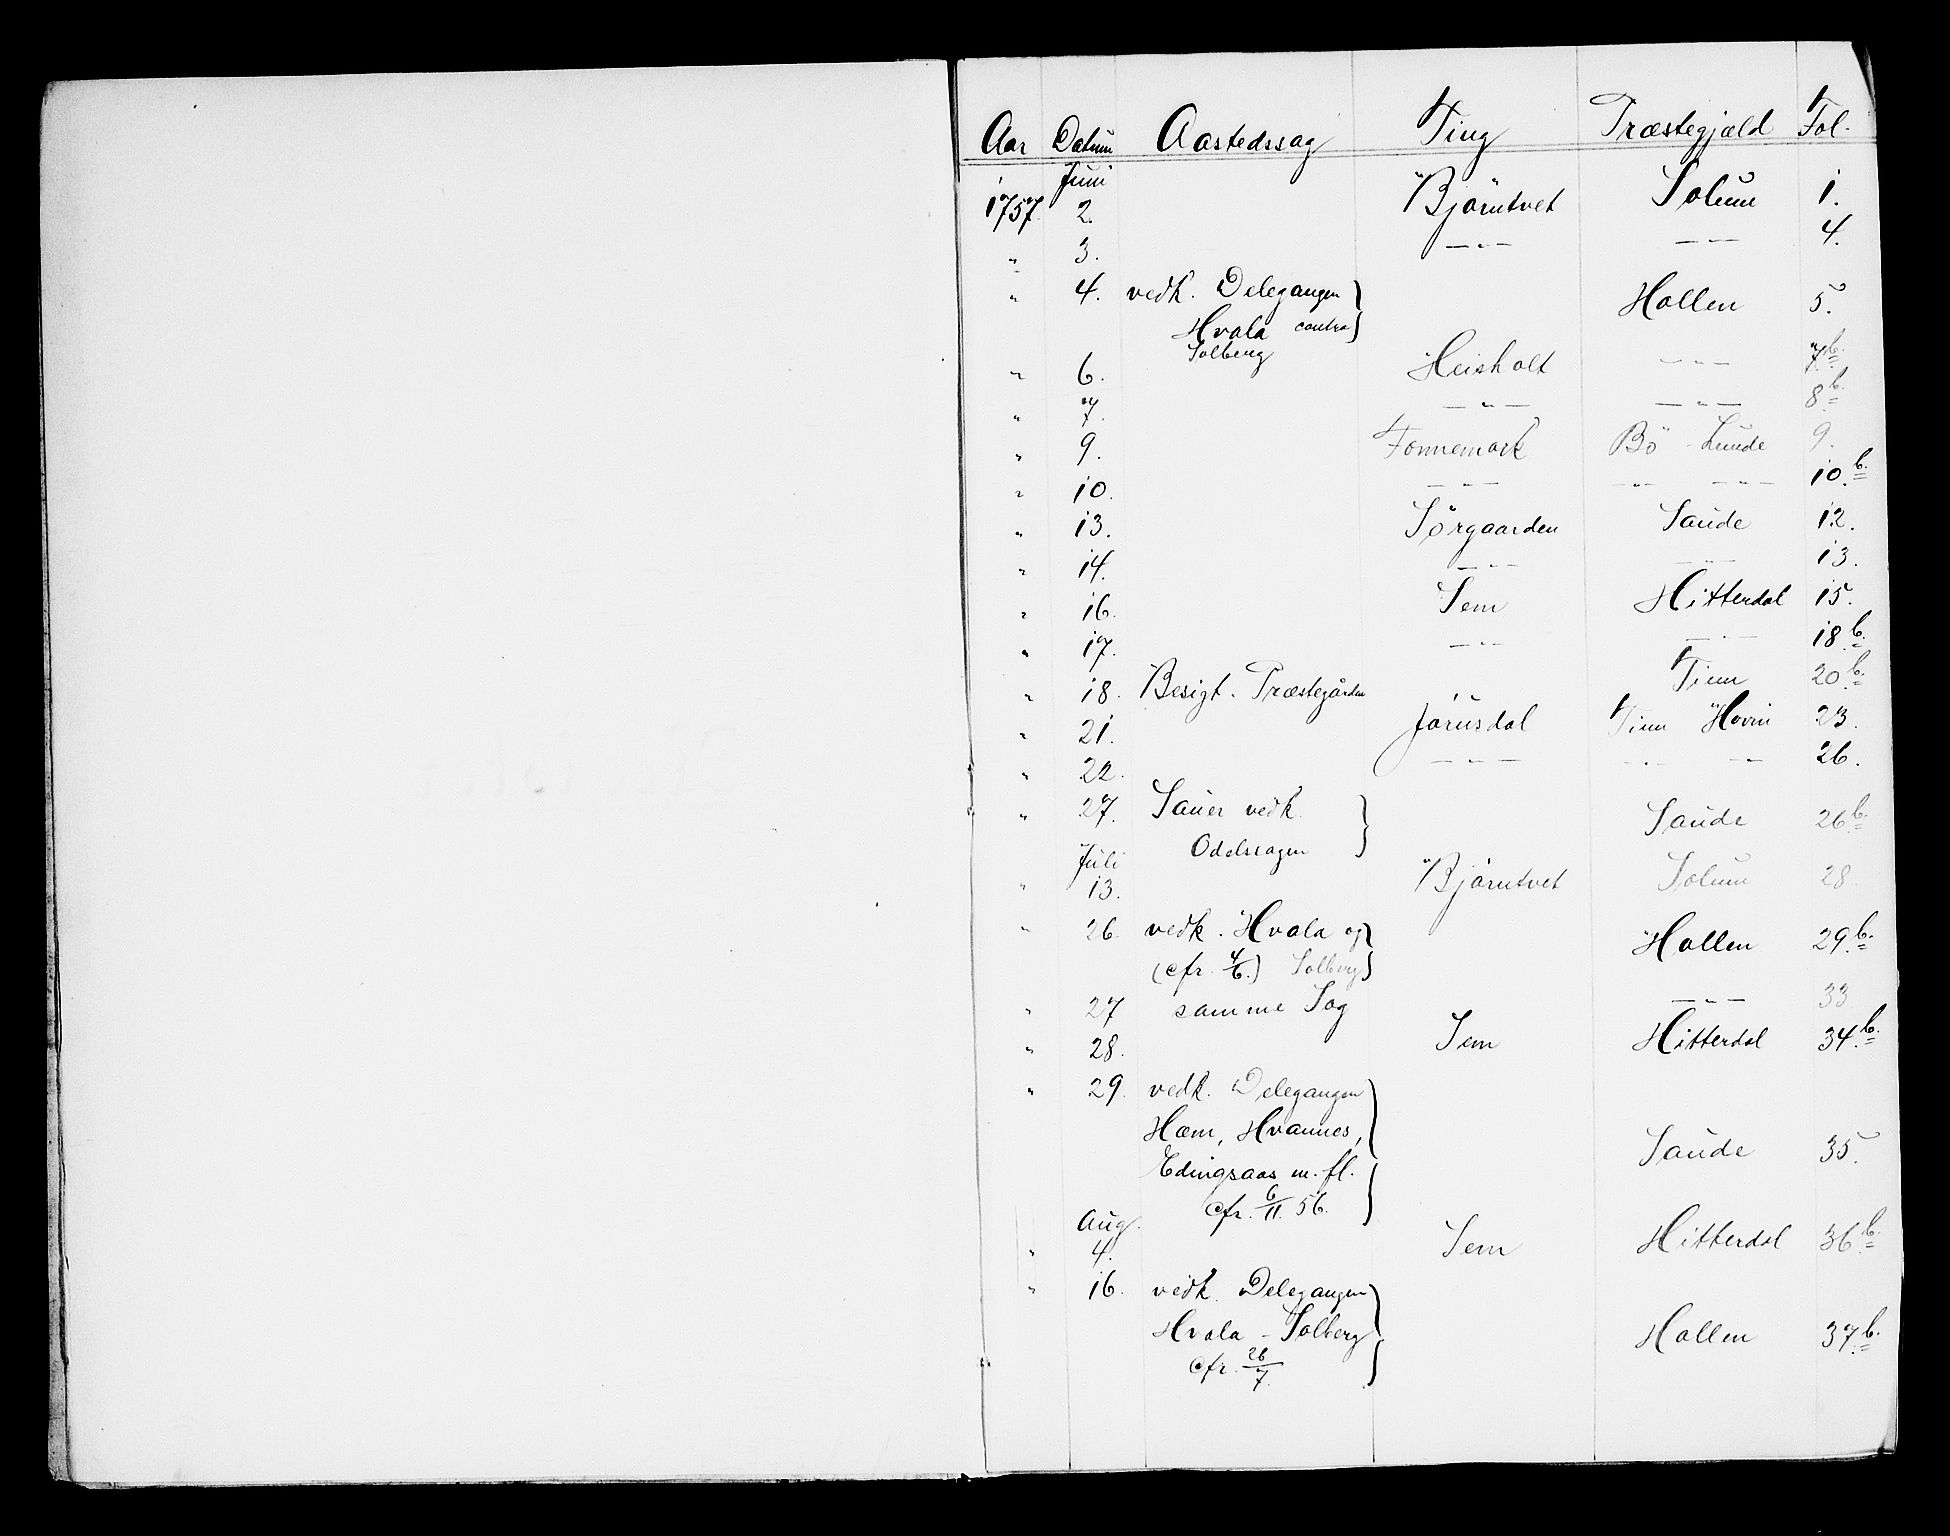 Aar Datum Aastedssag Ting Præstegjæld Fol.
Juni
1757. 2. Bjørntvet Solum 1.
" 3. — " — — " — 4.
" 4. vedk. Delegangen Hollen 5.
Hvala contra
Solberg
" 6. Heisholt — " — 7.b.
" 7. — " — — " — 8.b.
" 9. Fonnemark Bö - Lunde 9.
" 10. — " — — " — — " — 10.b.
" 13. Sörgaarden Saude 12.
" 14. — " — — " — 13.
" 16. Sem Hitterdal 15.
" 17. — " — — " — 18.b.
" 18. Besigt. Præstegården Tinn 20.b.
" 21. Jørnsdal Tinn Hovin 23.
" 22. — " — — " — — " — 26.
" 27. Sauer vedk. Saude 26.b.
Odelssagen
Juli
" 13. Bjørntvet Solum 28.
" 26. vedk. Hvala og Hollen 29.b.
(cfr. 4/6.) Solberg
" 27 samme Sag — " — 33.
" 28. Sem Hitterdal 34.b.
" 29. vedk. Delegangen
Hæm, Hvannes,
Edingsaas m. fl. Saude 35.
cfr. 6/11. 56.
Aug.
" 4. Sem Hitterdal 36.b.
" 16. vedk. Delegangen
Hvala - Solberg Hollen 37.b.
cfr. 26/7.